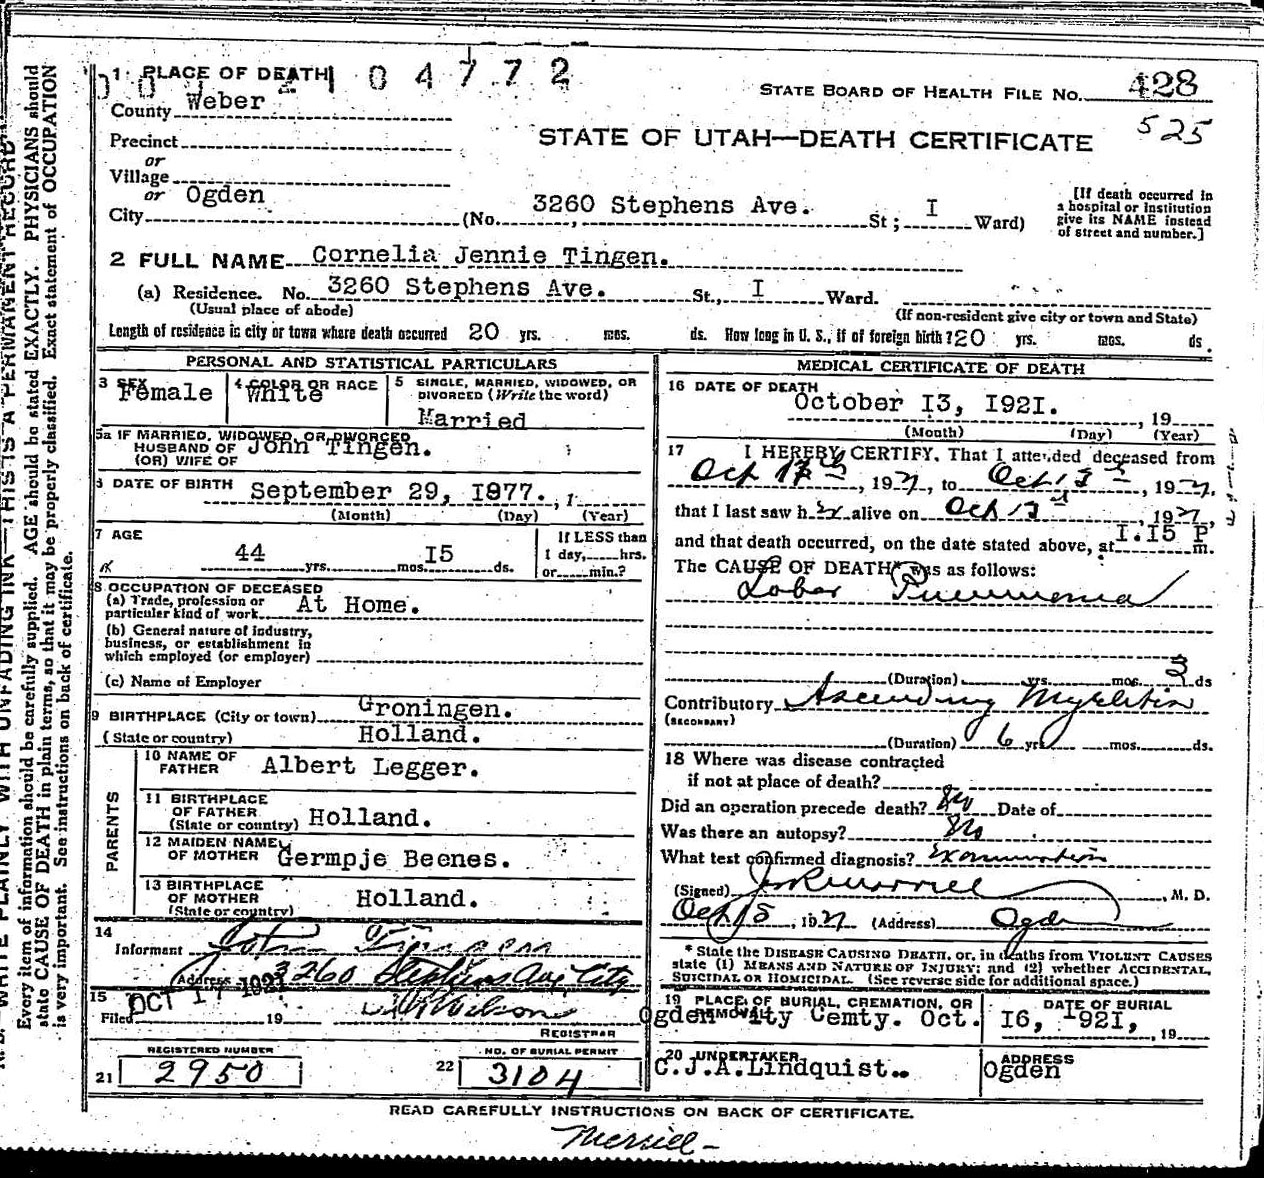 1 PLACE OF DEATH
04772
County Weber
STATE BOARD OF HEALTH FILE No. 428
525
Precinct
STATE OF UTAH—DEATH CERTIFICATE
or
Village
or
City Ogden (No. 3260 Stephens Ave. St; I Ward)
[If death occurred in
a hospital or institution
give its NAME instead
of street and number.]
2 FULL NAME Cornelia Jennie Tingen.
(a) Residence. No. 3260 Stephens Ave. St., I Ward.
(Usual place of abode)
(If non-resident give city or town and State)
Length of residence is city or town where death occurred 20 yrs. mos. ds. How long in U. S., if of foreign birth? 20 yrs. mos. ds.
PERSONAL AND STATISTICAL PARTICULARS
3 SEX Female
4 COLOR OR RACE White
5 SINGLE, MARRIED, WIDOWED, OR
DIVORCED (Write the word)
Married
5a IF MARRIED, WIDOWED, OR DIVORCED
HUSBAND OF John Tingen.
(OR) WIFE OF
6 DATE OF BIRTH September 29, 1877.
(Month) (Day) (Year)
7 AGE
44 yrs. mos. I5 ds.
If LESS than
1 day, hrs.
or min.?
8 OCCUPATION OF DECEASED
(a) Trade, profession or
particular kind of work At Home.
(b) General nature of industry,
business, or establishment in
which employed (or employer)
(c) Name of Employer
9 BIRTHPLACE (City or town) Groningen.
(State or country) Holland.
PARENTS
10 NAME OF
FATHER Albert Legger.
11 BIRTHPLACE
OF FATHER
(State or country) Holland.
12 MAIDEN NAME
OF MOTHER Germpje Beenes.
13 BIRTHPLACE
OF MOTHER
(State or country) Holland.
14
Informant John
Address 3260 Stephens Ave City
15
Filed OCT 17 1921 19
W Wilson
REGISTRAR
REGISTERED NUMBER
21 2950
NO. OF BURIAL PERMIT
22 3104
MEDICAL CERTIFICATE OF DEATH
16 DATE OF DEATH
October I3, I92I. , 19
(Month) (Day) (Year)
17 I HEREBY CERTIFY, That I attended deceased from
Oct , 1921, to Oct 13th , 1921,
that I last saw her alive on Oct , 1921,
and that death occurred, on the date stated above, at I.I5 P m.
The CAUSE OF DEATH* was as follows:
Lobar Pneumonia
(Duration) yrs. mos. 3 ds
Contributory Ascending Myelitis
(SECONDARY)
(Duration) 6 yrs mos. ds.
18 Where was disease contracted
if not at place of death?
Did an operation precede death? No Date of
Was there an autopsy? No
What test confirmed diagnosis? Examination
(Signed) Merrill , M. D.
Oct 15 , 1921 (Address) Ogden
* State the DISEASE CAUSING DEATH, or, in deaths from VIOLENT CAUSES
state (1) MEANS AND NATURE OF INJURY; and (2) whether ACCIDENTAL,
SUICIDAL OR HOMICIDAL. (See reverse side for additional space.)
19 PLACE OF BURIAL, CREMATION, OR
REMOVAL
Ogden City Cemty. Oct.
DATE OF BURIAL
I6, I92I, , 19
20 UNDERTAKER
C.J.A.Lindquist..
ADDRESS
Ogden
READ CAREFULLY INSTRUCTIONS ON BACK OF CERTIFICATE.
Merrill -
WRITE PLAINLY WITH UNFADING INK—THIS IS A PERMANENT RECORD
Every item of information should be carefully supplied. AGE should be stated EXACTLY. PHYSICIANS should
state CAUSE OF DEATH in plain terms, so that it may be properly classified. Exact statement of OCCUPATION
is very important. See instructions on back of certificate.